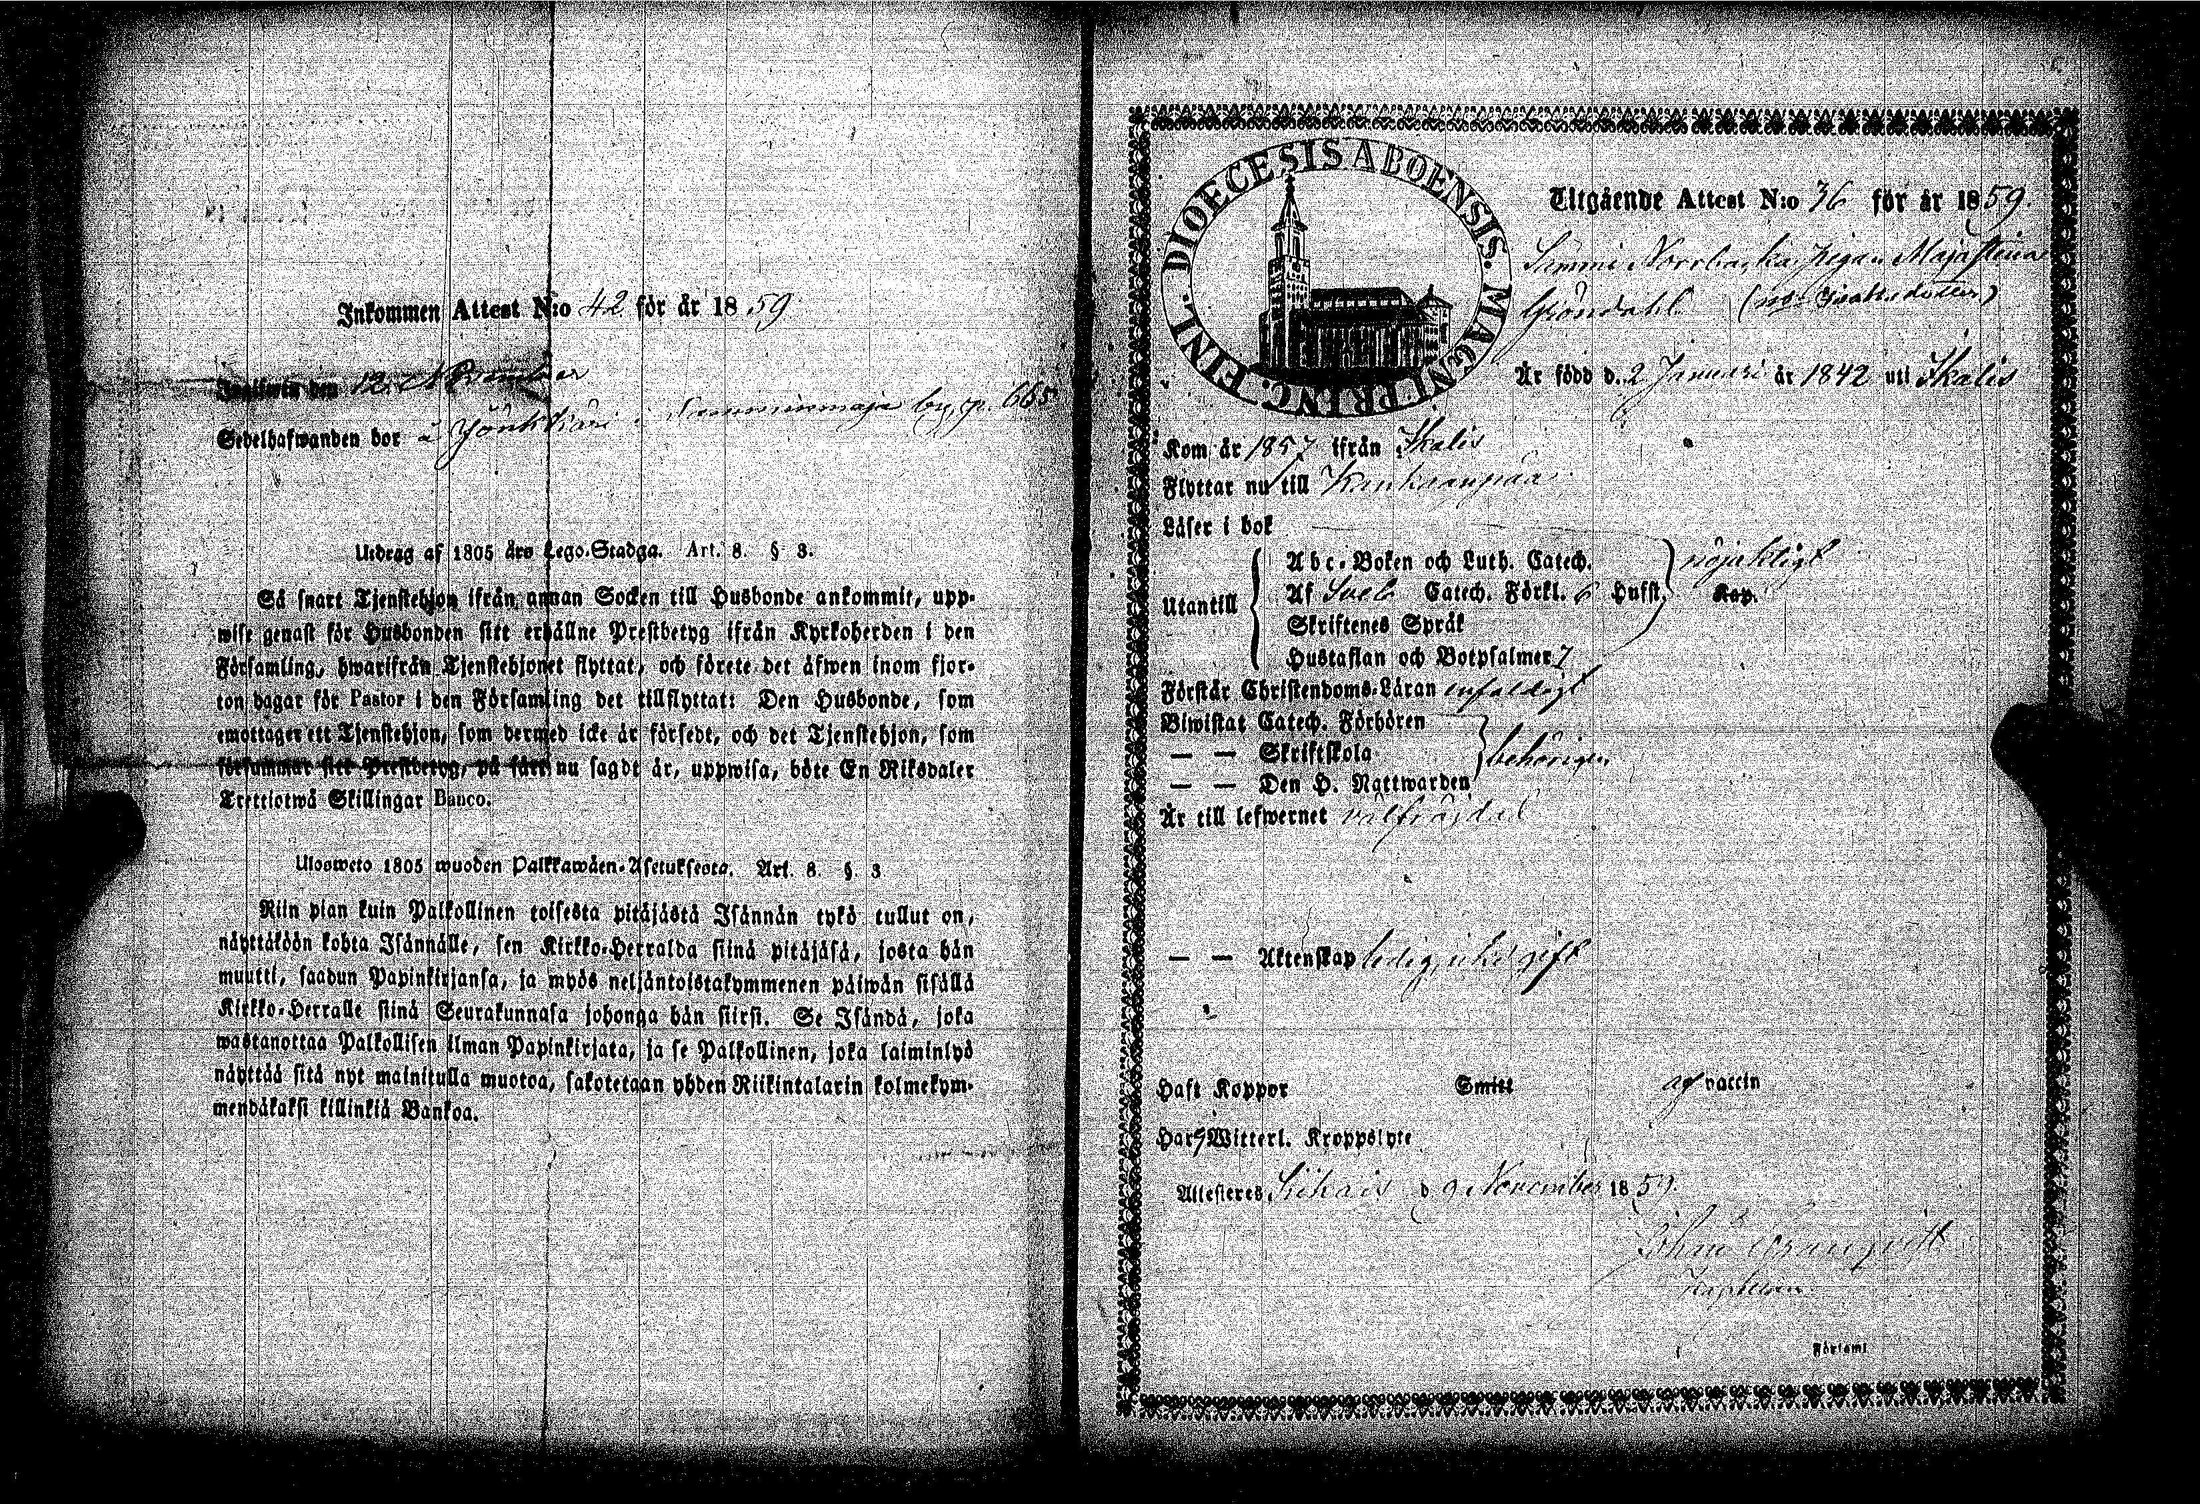 Inkommen Attest N:o 42 för år 1859
Inglifwen den 12 November
Sedelhafwanden bor å Jönkkäri i Samminmaja by, p. 665
Utdrag af 1805 års Lego-Stadga. Art. 8. § 3.
Så snart Tjenstehjon ifrån annan Socken till Husbonde ankommit, upp-
wise genast för Husbonden sitt erhållne Prestbetyg ifrån Kyrkoherden i den
Församling, hwarifrån Tjenstehjonet flyttat, och förete det äfwen inom fjor-
ton dagar för Pastor i den Församling det tillflyttat: Den Husbonde, som
emottager ett Tjenstehjon, som dermed icke är försedt, och det Tjenstehjon, som
försummar sitt Prestbetyg, på sätt nu sagdt är, uppwisa, böte En Riksdaler
Trettiotwå Skillingar Banco.
Ulosweto 1805 wuoden Palkkawäen-Asetuksesta. Art. 8. §. 3
Niin pian kuin Palkollinen toisesta pitäjästä Isännän tykö tullut on,
näyttäköön kohta Isännälle, sen Kirkko-Herralda siinä pitäjäsä, josta hän
muutti, saadun Papinkirjansa, ja myös neljäntoistakymmenen päiwän sisällä
Kirkko-Herralle siinä Seurakunnasa johonga hän siirsi. Se Isändä, joka
wastanottaa Palkollisen ilman Papinkirjata, ja se Palkollinen, joka laiminlyö
näyttää sitä nyt mainitulla muotoa, sakotetaan yhden Riikintalarin kolmekym-
mendäkaksi killinkiä Bankoa.
DIOECESIS ABOENSIS. MAGNI PRINC. FINL.
Utgående Attest N:o 36 för år 1859.
Norrbacka Pigan Maja Stina
Gröndahl
Är född d. 2 Januari år 1842 uti Ikalis
Kom år 1857 ifrån Ikalis
Flyttar nu till Kankaanpää
Läser i bok
Abc-Boken och Luth. Catech. nöjaktigt
Utantill Af Sveb Catech. Förkl. 6 Hufst. Kap.
Skriftenes Språk
Hustaflan och Botpsalmer 7
Förstår Christendoms-Läran enfaldigt
Biwistat Catech. Förhören
— — Skriftskola behörigen
— — Den H. Nattwarden
Är till lefwernet välfräjdad
— — Äktenskap ledig, icke gift
Haft Koppor Smitt af vaccin
Har Witterl. Kroppslyte
Attesteres Sikais d 9 November 1859.
Kaplan
Församl